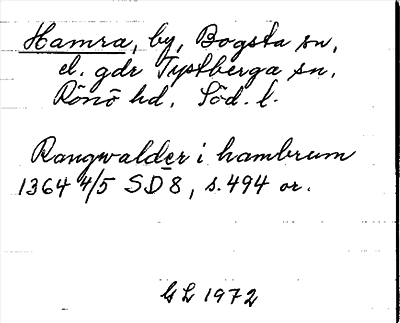 Hamra, by, Bogsta sn,
el. gdr Tystberga sn,
Rönö hd. Söd. l.
Rangwalder i hambrum
1364 4/5 SD 8, s. 494 or.
GL 1972